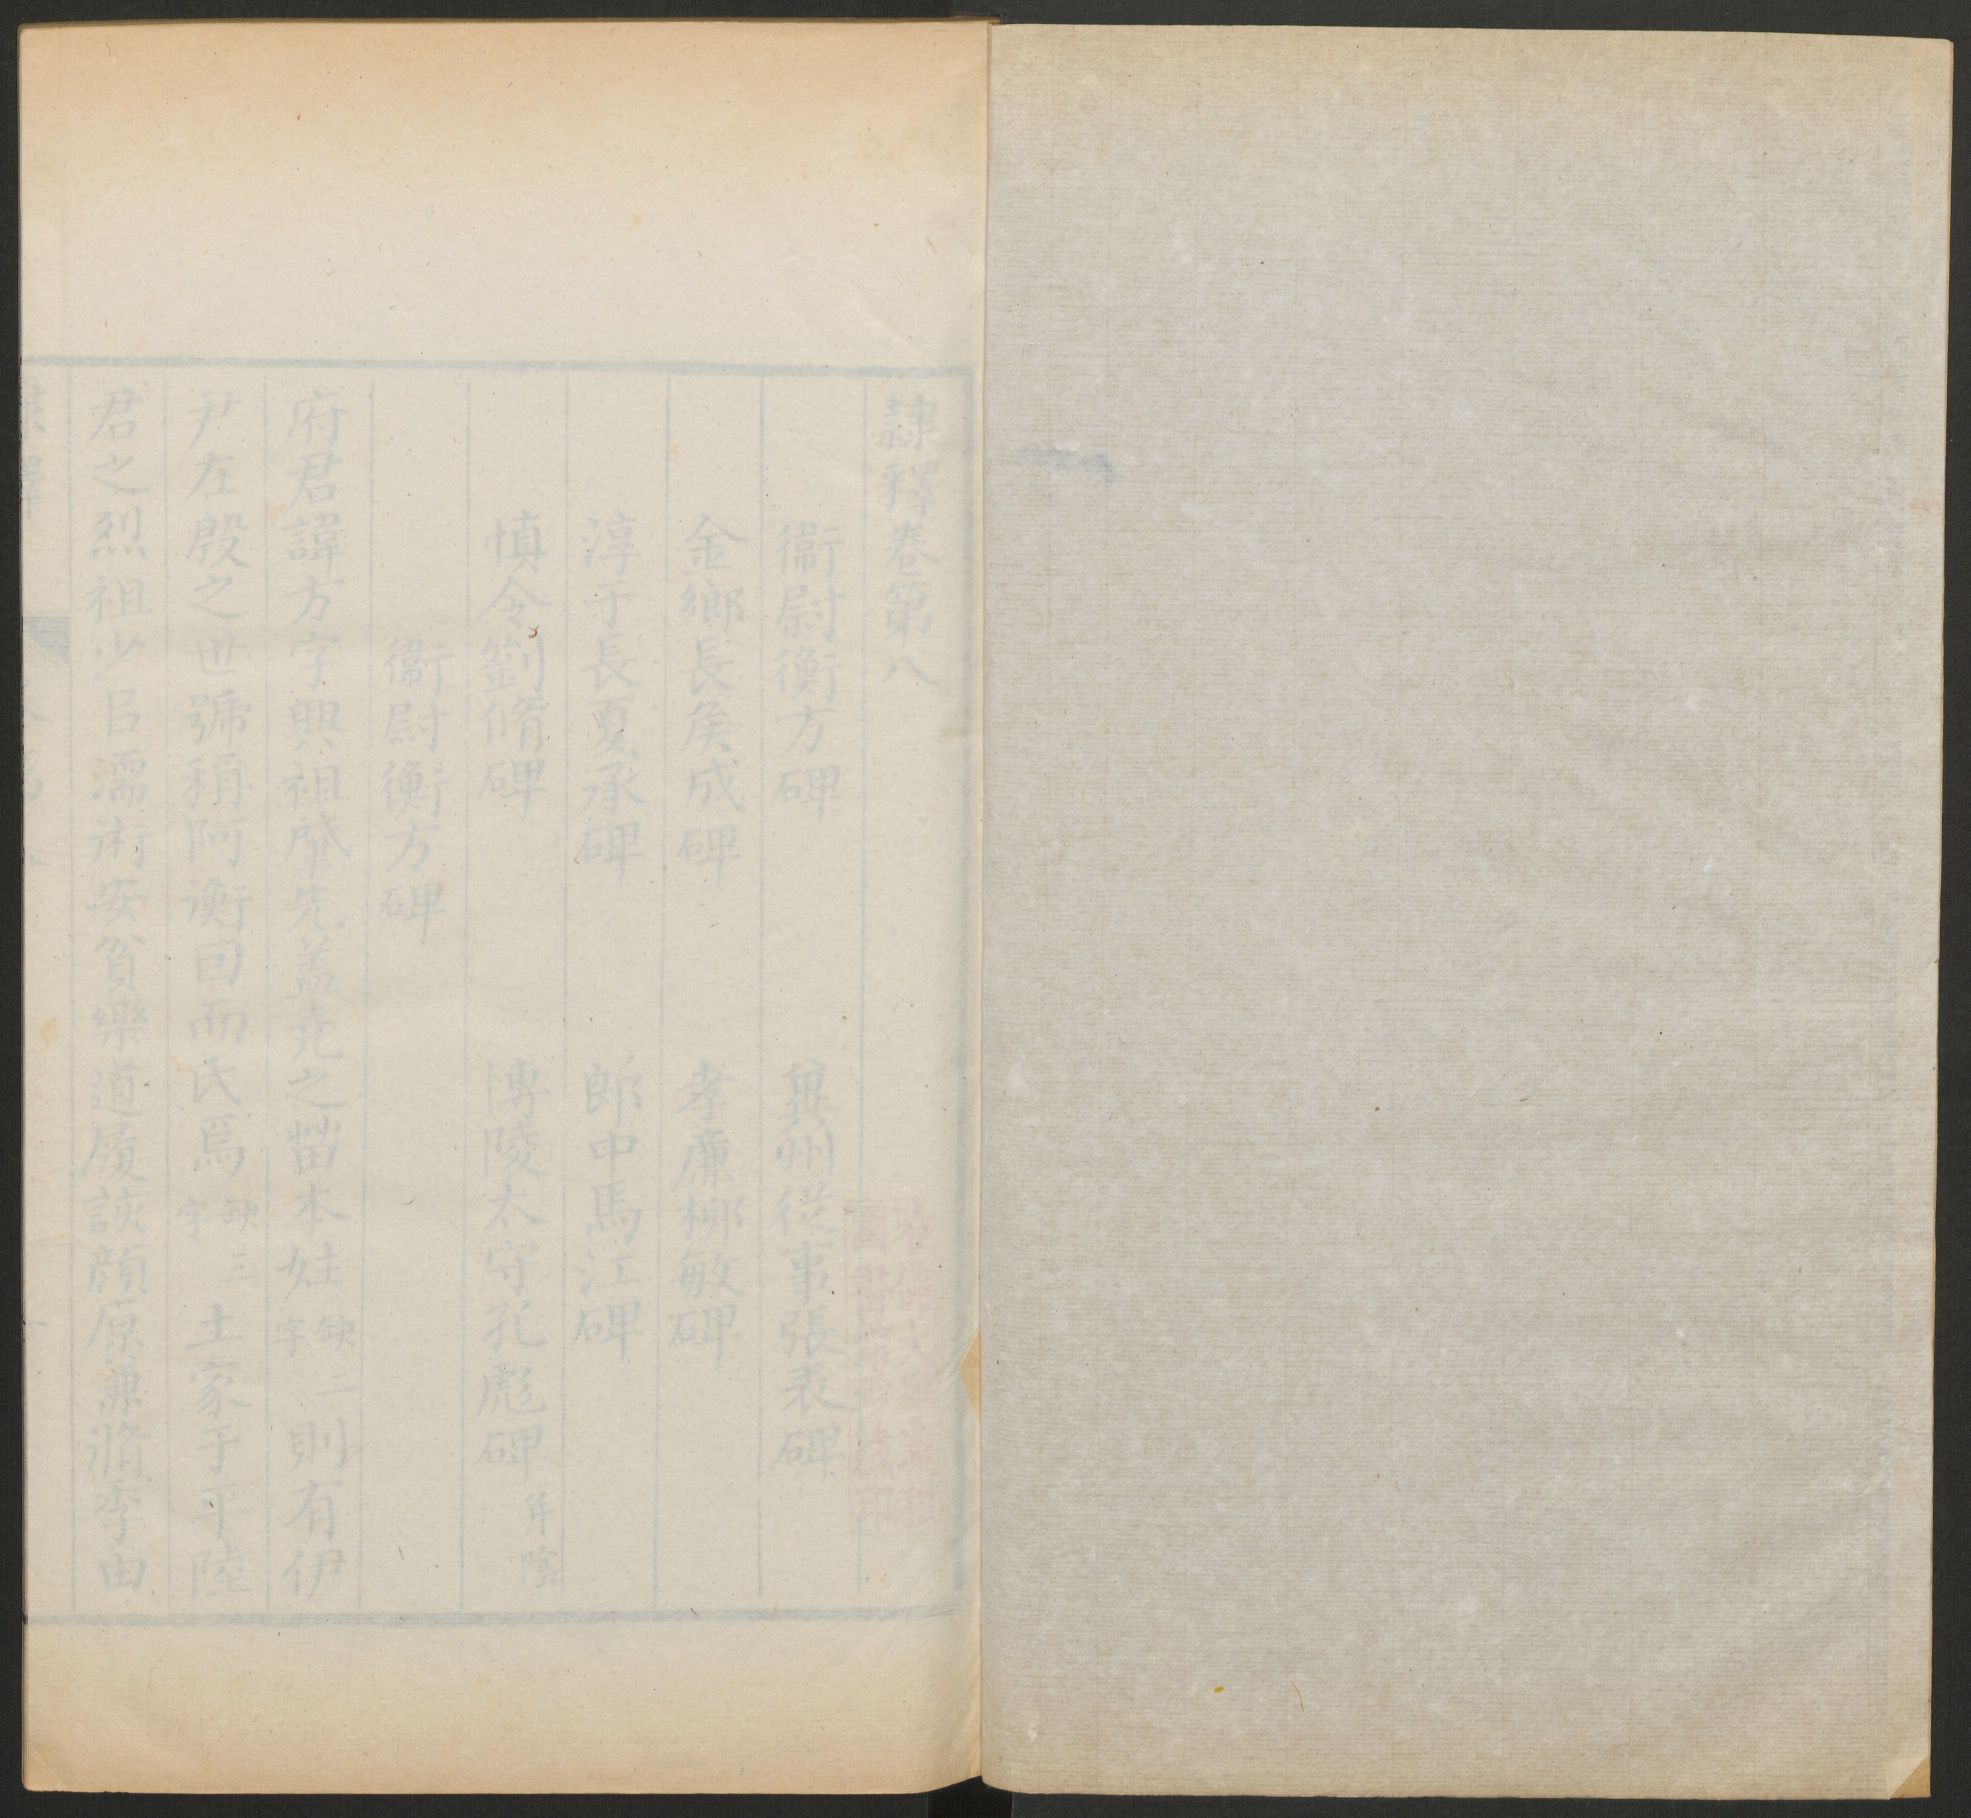 隷釋卷第八
衞尉衡方碑　冀州從事張表碑
金鄉長侯成碑　孝廉柳敏碑
淳于長夏承碑　郎中馬江碑
慎令劉脩碑　博陵太守孔彪碑 并陰
衞尉衡方碑
府君諱方字興祖肇先蓋堯之苗本姓 缺二字 則有伊
尹在殷之世號稱阿衡因而氏焉 缺三字 土家于平陸
君之烈祖少㠯濡術安貧樂道履該顏原兼脩季由